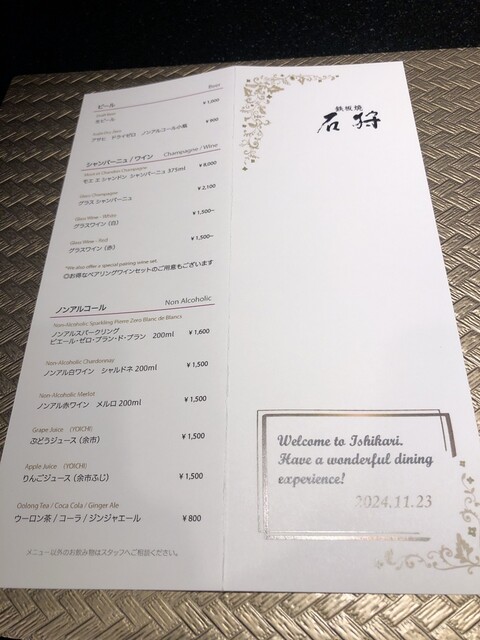 ビール Beer
Draft Beer
生ビール ¥1,000
アサヒ ドライゼロ ノンアルコール小瓶 ¥900
シャンパーニュ / ワイン Champagne / Wine
Moet et Chandon Champagne
モエ エ シャンドン シャンパーニュ 375ml ¥8,000
Glass Champagne
グラス シャンパーニュ ¥2,100
Glass Wine - White
グラスワイン (白) ¥1,500~
Glass Wine - Red
グラスワイン (赤) ¥1,500~
*We also offer a special pairing wine set.
◎お得なペアリングワインセットのご用意もございます
ノンアルコール Non Alcoholic
Non-Alcoholic Sparkling Pierre Zero Blanc de Blancs
ノンアルスパークリング
ピエール・ゼロ・ブラン・ド・ブラン 200ml ¥1,600
Non-Alcoholic Chardonnay
ノンアル白ワイン シャルドネ 200ml ¥1,500
Non-Alcoholic Merlot
ノンアル赤ワイン メルロ 200ml ¥1,500
Grape Juice (YOICHI)
ぶどうジュース (余市) ¥1,500
Apple Juice (YOICHI)
りんごジュース (余市ふじ) ¥1,500
Oolong Tea / Coca Cola / Ginger Ale
ウーロン茶 / コーラ / ジンジャエール ¥800
メニュー以外のお飲み物はスタッフへご相談ください。
鉄板焼
石狩
Welcome to Ishikari.
Have a wonderful dining
experience!
2024.11.23